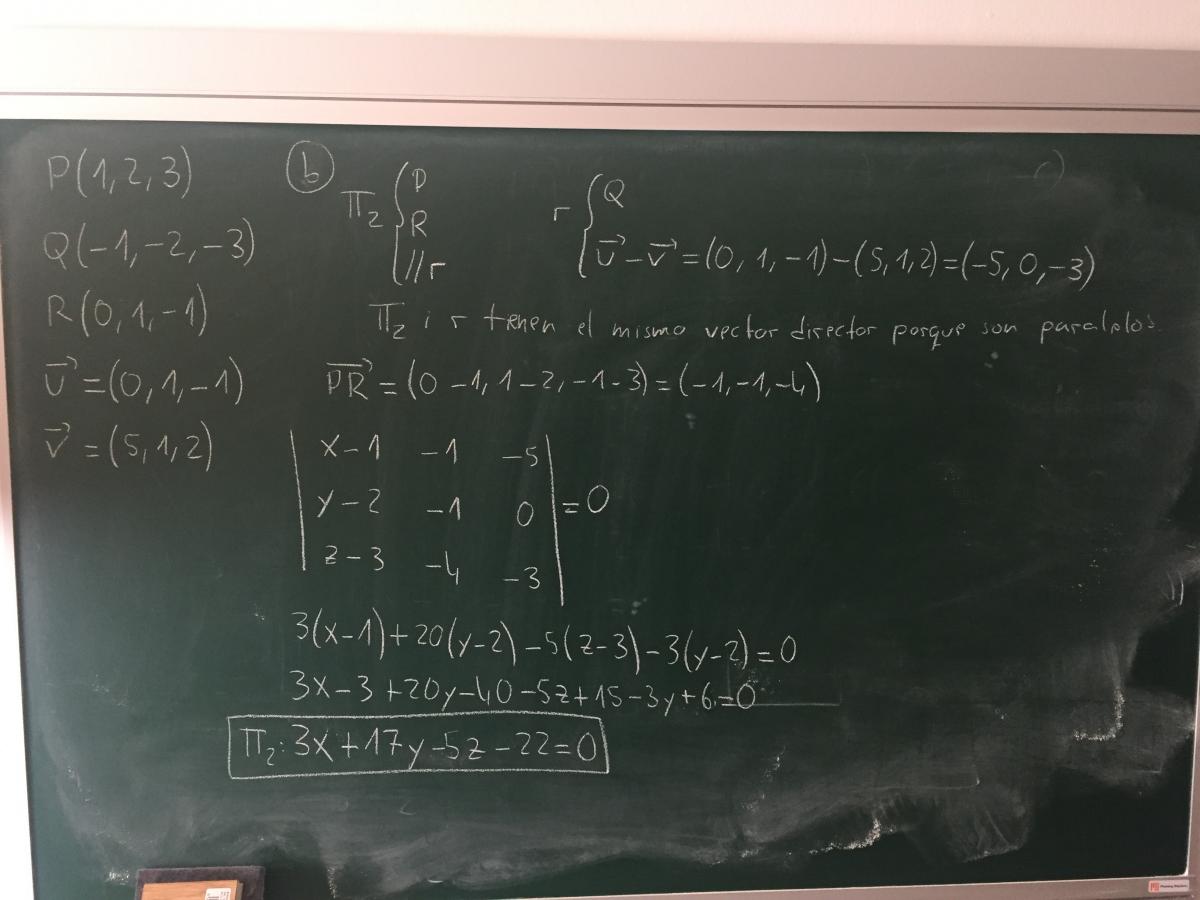 P(1,2,3)
Q(-1,-2,-3)
R(0,1,-1)
u⃗=(0,1,-1)
v⃗=(5,1,2)
b
π₂ { P
R
//r
r { Q
u⃗-v⃗=(0,1,-1)-(5,1,2)=(-5,0,-3)
π₂ i r tienen el mismo vector director porque son paralelos.
PR⃗=(0-1,1-2,-1-3)=(-1,-1,-4)
| x-1 -1 -5 |
| y-2 -1 0 | =0
| z-3 -4 -3 |
3(x-1)+20(y-2)-5(z-3)-3(y-2)=0
3x-3+20y-40-5z+15-3y+6=0
π₂: 3x+17y-5z-22=0